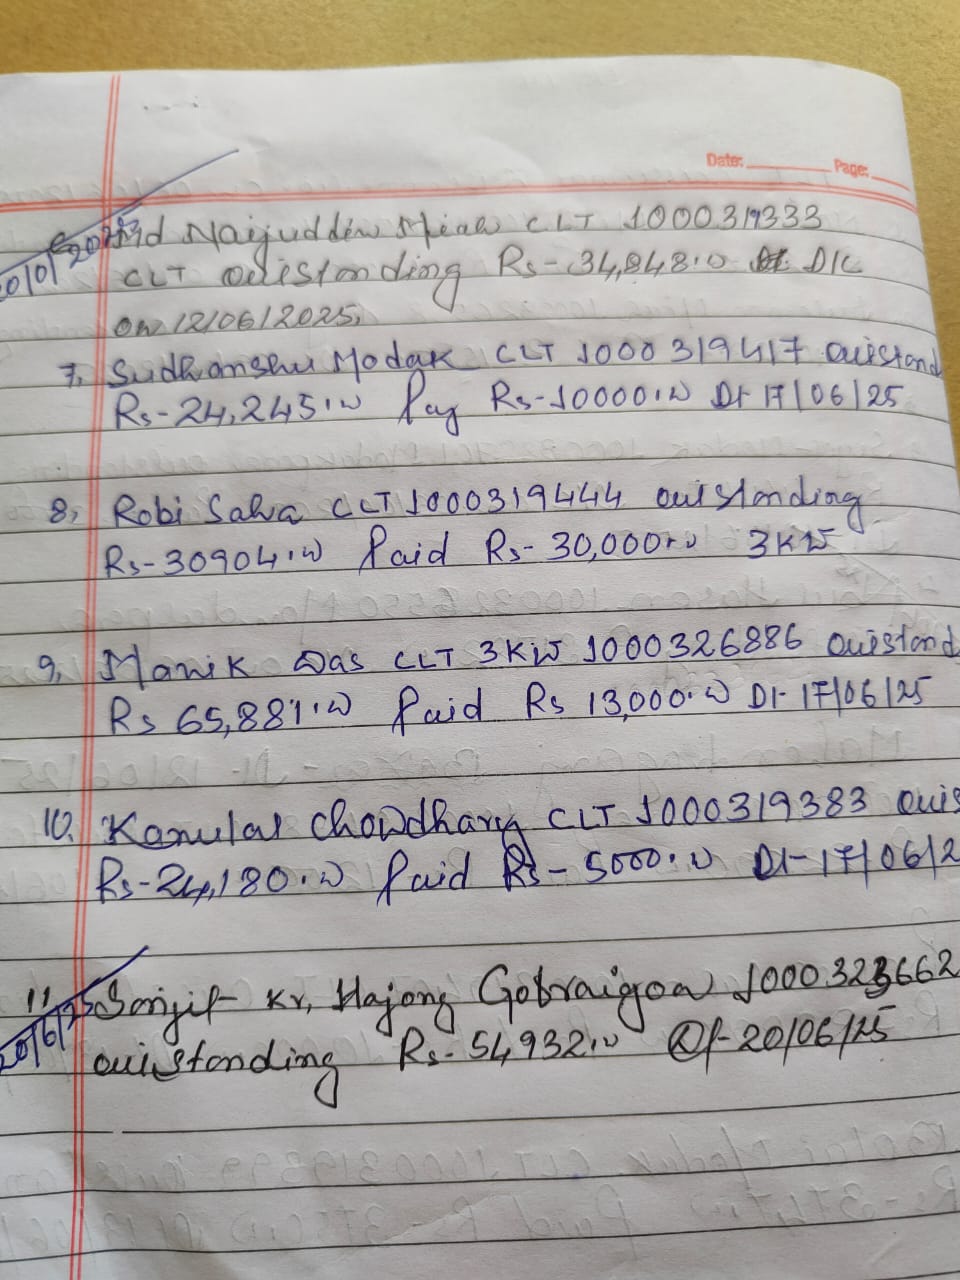 Date: Page:
6, 20/01/2025 Md Naijuddin Miah CLT 1000319333
CLT outstanding Rs-34,848.00 D/C
on 12/06/2025,
7, Sudhanshu Modak CLT 1000319417 outstand
Rs-24,245.00 Pay Rs-10000.00 Dt 17/06/25
8, Robi Saha CLT 1000319444 outstanding
Rs-30904.00 Paid Rs-30,000.00 3KW
9, Manik Das CLT 3KW 1000326886 outstand
Rs 65,881.00 Paid Rs 13,000.00 Dt-17/06/25
10. Kanulal Chowdhary CLT 1000319383 outs
Rs-24,180.00 Paid Rs-5000.00 Dt-17/06/2
11, 20/6/25 Sanjit Kr, Hajong Gobraigoa 1000323662
outstanding Rs-54,932.00 Dt-20/06/25